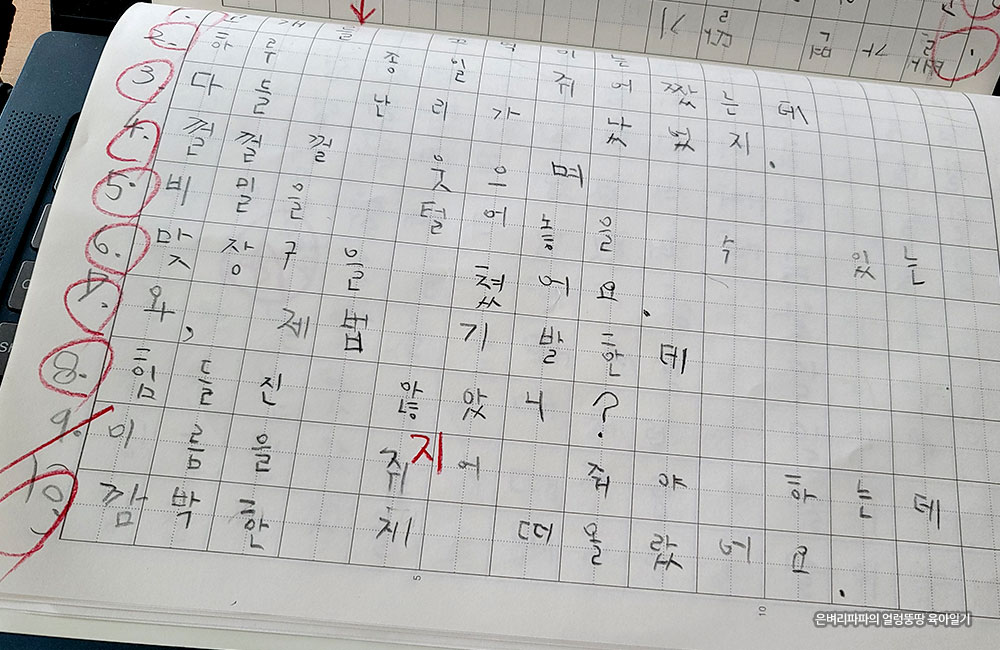 2. 하루 종일 쥐어짰는데
3. 다들 난리가 났었지.
4. 껄껄껄 웃으며
5. 비밀을 털어놓을 수 있는
6. 맞장구을 쳤어요.
7. 와, 제법 기발한데
8. 힘들진 않았니?
9. 이름을 쥐지어 줘야 하는데
10. 깜박한 제 떠올랐어요.
5
10
은벼리파파의 얼렁뚱땅 육아일기